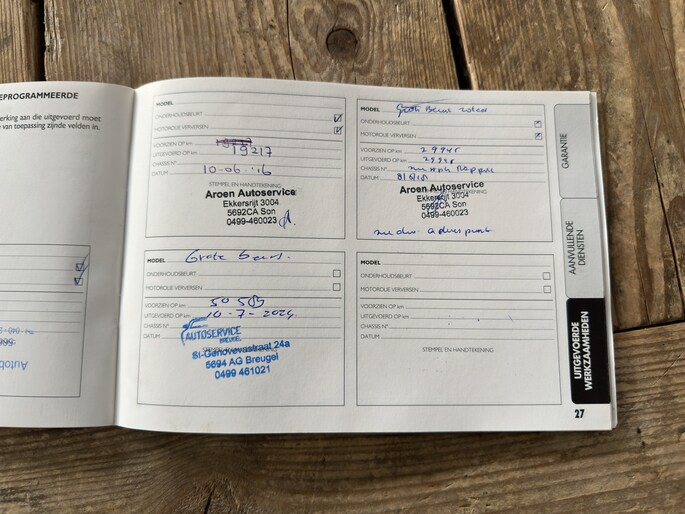 EPROGRAMMEERDE
erking aan die uitgevoerd moet
van toepassing zijnde velden in.
MODEL
ONDERHOUDSBEURT
MOTOROLIE VERVERSEN
VOORZIEN OP km
UITGEVOERD OP km 19217
CHASSIS N°
DATUM 10-06-'16
STEMPEL EN HANDTEKENING
Aroen Autoservice
Ekkersrijt 3004
5692CA Son
0499-460023
MODEL Grote Beurt
ONDERHOUDSBEURT
MOTOROLIE VERVERSEN
VOORZIEN OP km
UITGEVOERD OP km
CHASSIS N°
DATUM
STEMPEL EN HANDTEKENING
Aroen Autoservice
Ekkersrijt 3004
5692CA Son
0499-460023
Grote Beurt.
MODEL
ONDERHOUDSBEURT
MOTOROLIE VERVERSEN
VOORZIEN OP km 50 589
UITGEVOERD OP km 10-7-2024
CHASSIS N°
DATUM
AUTOSERVICE
BREUGEL
St-Genovevastraat 24a
5694 AG Breugel
0499 461021
MODEL
ONDERHOUDSBEURT
MOTOROLIE VERVERSEN
VOORZIEN OP km
UITGEVOERD OP km
CHASSIS N°
DATUM
STEMPEL EN HANDTEKENING
GARANTIE
AANVULLENDE
DIENSTEN
UITGEVOERDE
WERKZAAMHEDEN
27